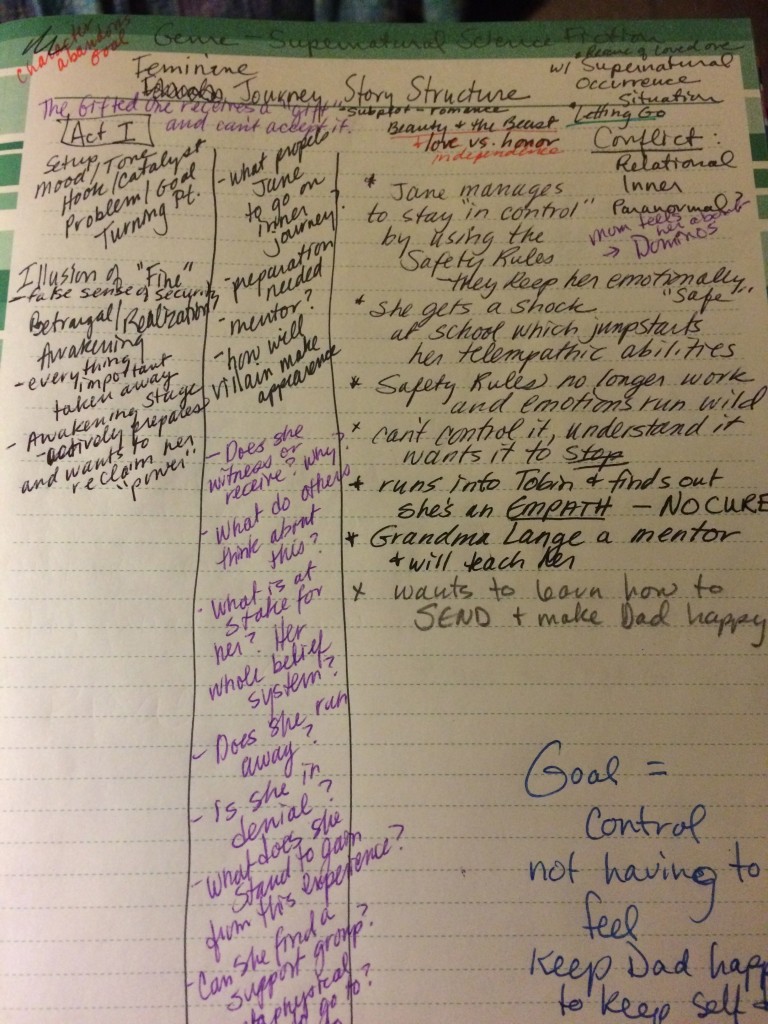 character
abandons
Goal
Genre - Supernatural Science Fiction
Feminine
Journey Story Structure
* Rescue of Loved one
w/ Supernatural
Occurrence
Situation
* Letting Go
The Gifted one receives a "gift"
and can't accept it.
Subplot - romance
Beauty & the Beast
+ love vs. honor
independence
Act I
Setup
Mood/Tone
Hook/Catalyst
Problem/Goal
Turning Pt.
Illusion of "Fine"
- false sense of security
Betrayal/Realization
Awakening
- everything
important
taken away
- Awakening Stage
- actively prepares
and wants to
reclaim her
"power"
- what propels
Jane
to go on
inner
journey?
- preparation
needed
- mentor?
- how will
villain make
appearance
- Does she
witness or
receive? Why?
- What do others
think about
this?
- What is at
stake for
her? Her
whole belief
system?
- Does she run
away?
- is she in
denial?
- What does she
stand to gain
from this experience?
- Can she find a
support group?
to go to?
Conflict:
Relational
Inner
Paranormal?
mom tells
her about
→ Dominos
* Jane manages
to stay "in control"
by using the
Safety Rules
- they keep her emotionally
"Safe"
* She gets a shock
at school which jumpstarts
her telempathic abilities
* Safety Rules no longer work
and emotions run wild
* can't control it, understand it
wants it to Stop
* runs into Tobin & finds out
she's an EMPATH - NO CURE
* Grandma Lange a mentor
+ will teach her
x wants to learn how to
SEND + make Dad happy
Goal =
Control
not having to
feel
Keep Dad happ
to keep self